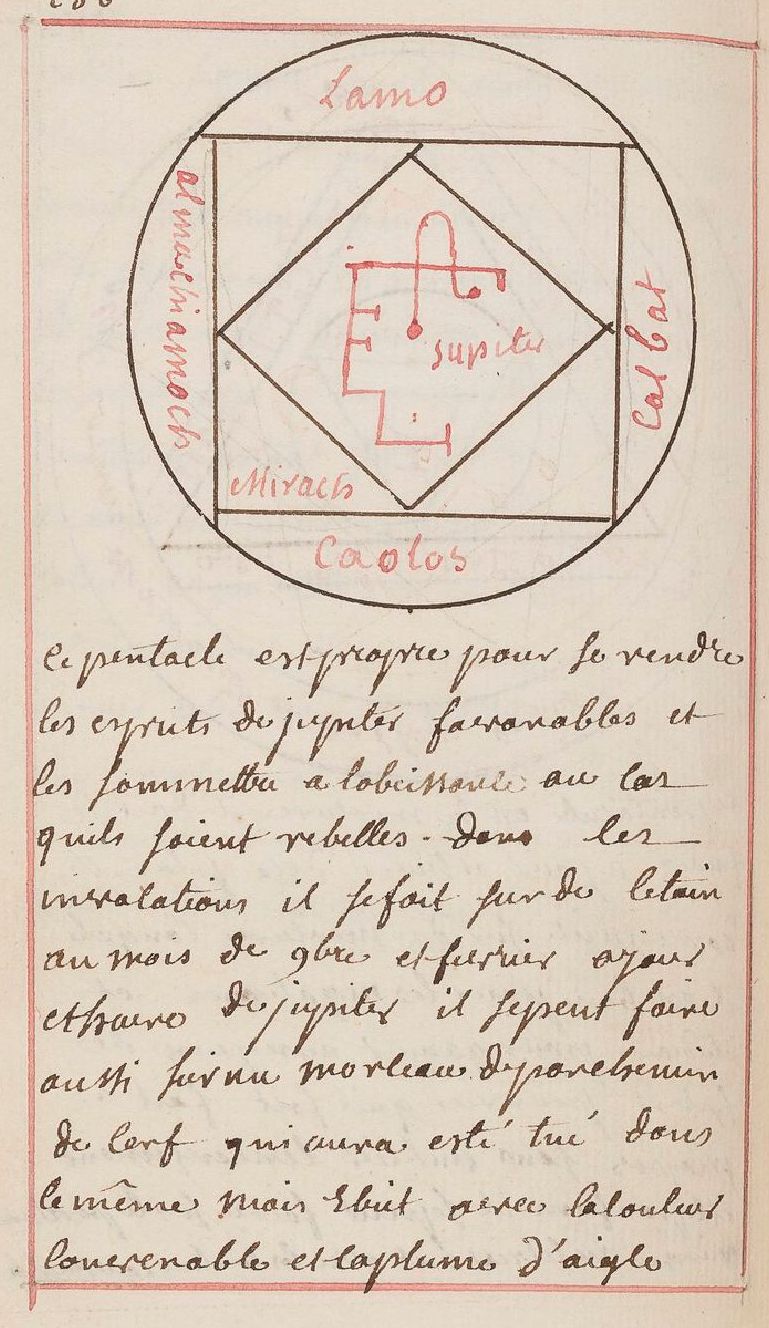 Lamo
almachiamoch
Calbat
Jupiter
Mirach
Caolos
Ce pentacle est propre pour se rendre
les esprits de jupiter favorables et
les soummettre a lobeissance au cas
quils soient rebelles. dans les
invocations il se fait sur de letain
au mois de 9bre et fevrier a jour
et heure de jupiter il se peut faire
aussi sur un morceau de parchemin
de Cerf qui aura esté tué dans
le même mois avec la couleur
Convenable et la plume d'aigle